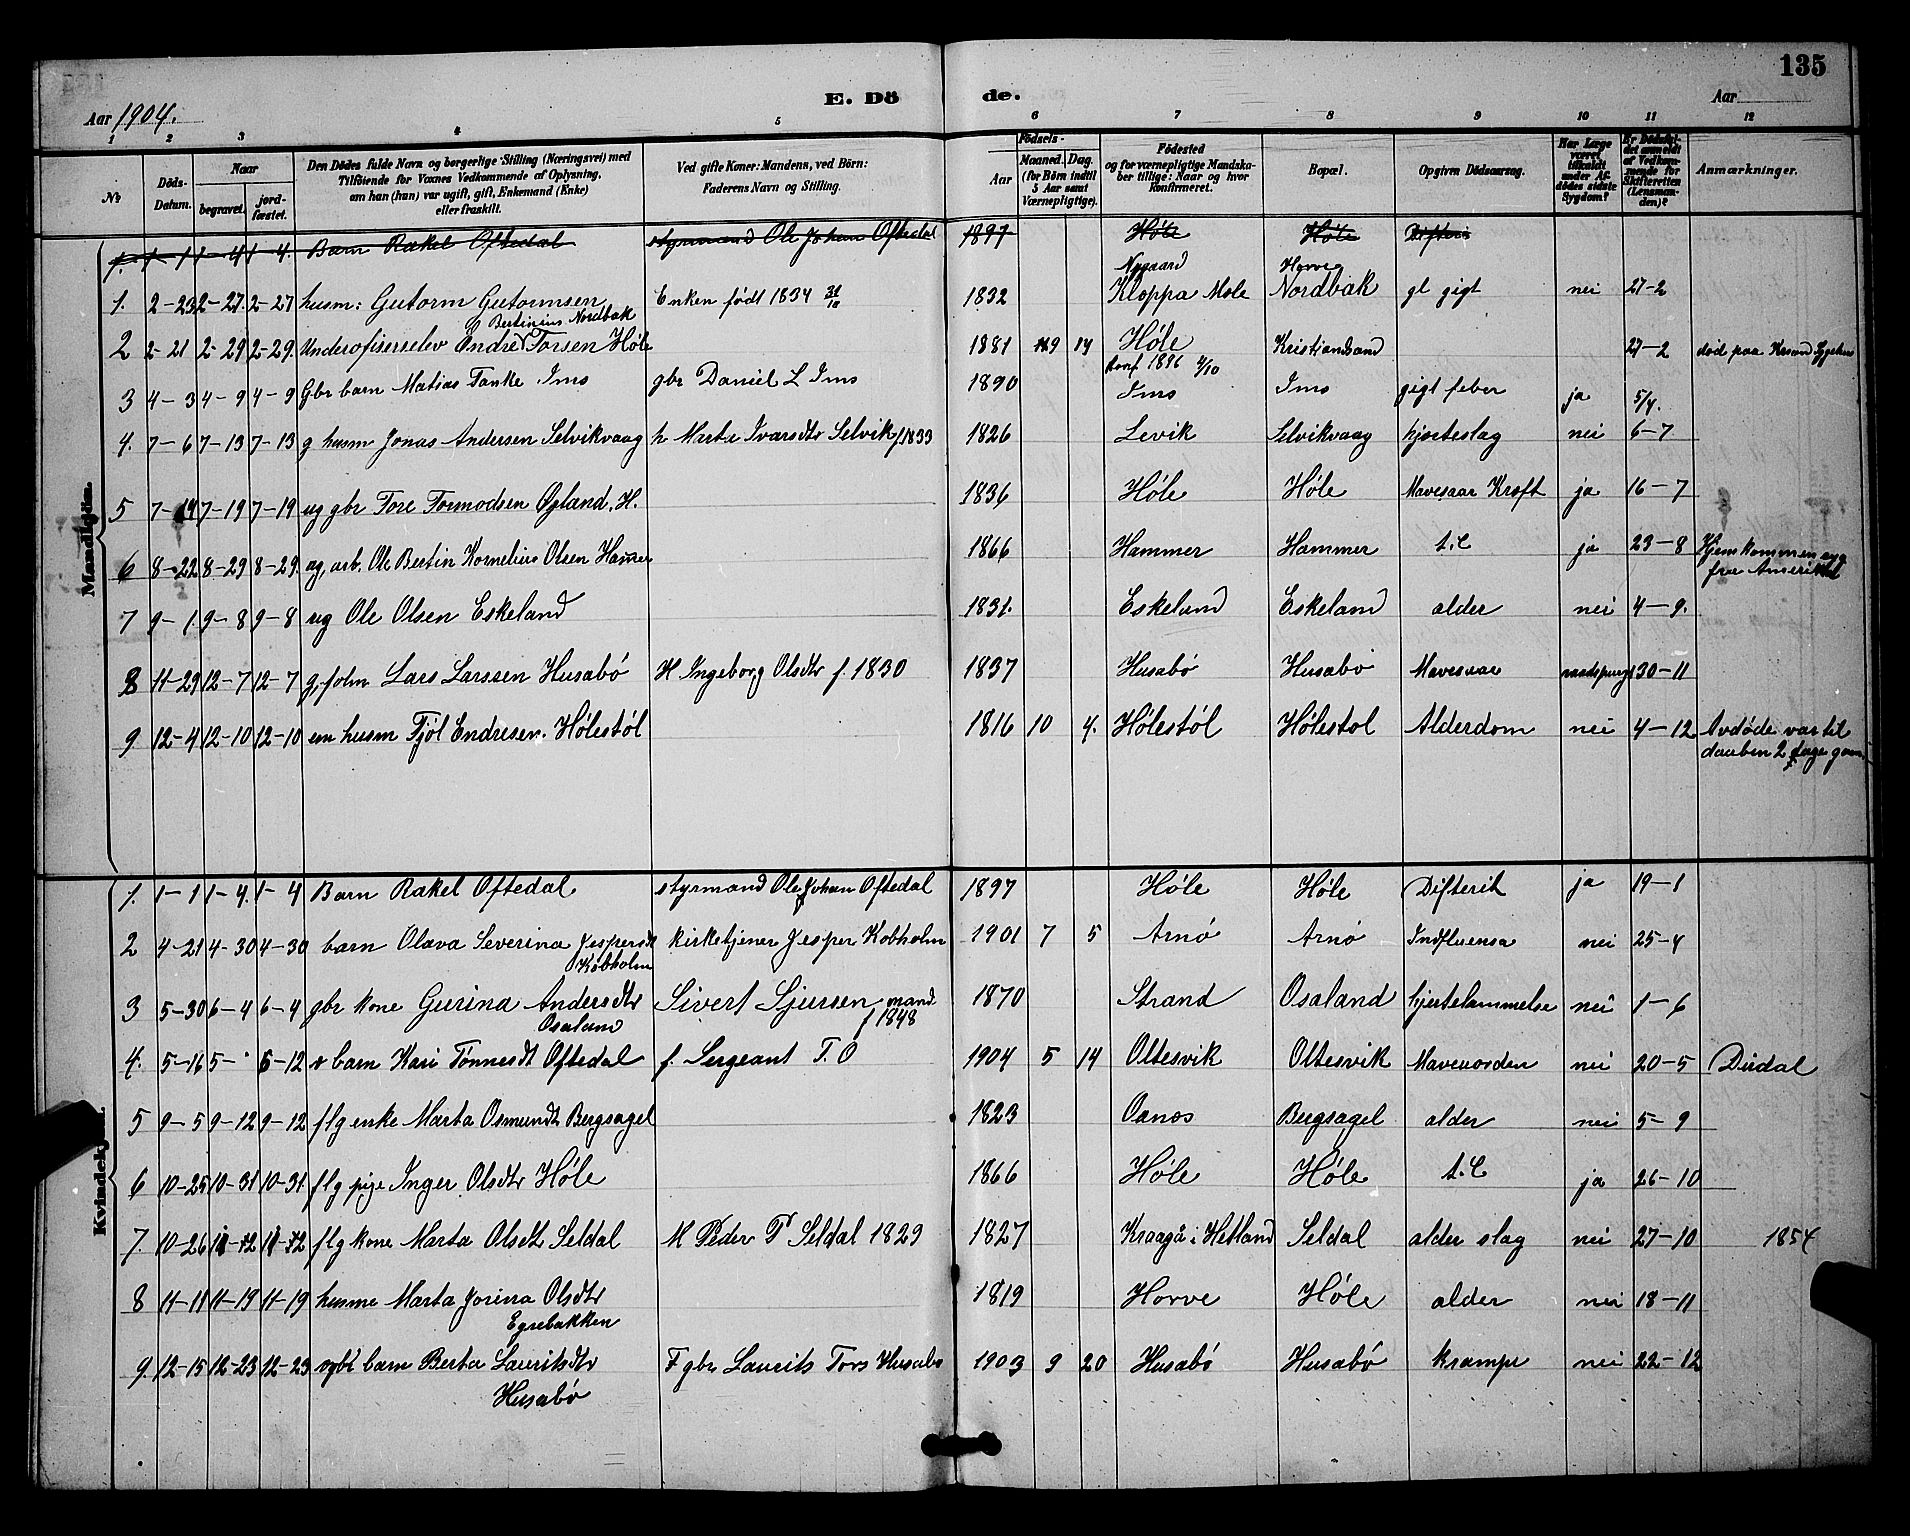 135
Aar 1904. E. Döde. Aar
1 2 3 4 5 6 7 8 9 10 11 12
No Döds-Datum. Naar begravet. jordfæstet. Den Dödes fulde Navn og borgerlige Stilling (Næringsvei) med Tilföiende for Voxnes Vedkommende af Oplysning, om han (hun) var ugift, gift, Enkemand (Enke) eller fraskilt. Ved gifte Koner: Mandens, ved Börn: Faderens Navn og Stilling. Födsels- Aar Maaned. Dag. (for Börn indtil 5 Aar samt Værnepligtige). Födested og for værnepligtige Mandskaber tillige: Naar og hvor konfirmeret. Bopæl. Opgiven Dödsaarsag. Har Læge været tilkaldt under Afdödes sidste Sygdom? Er Dödsfaldet anmeldt af Vedkommende for Skifteretten (Lensmanden)? Anmærkninger.
Mandkjön.
1. 1-1 1-4 1-4. Barn Rakel Oftedal styrmand Ole Johan Oftedal 1897 Høle Høle Difteri
1. 2-23 2-27. 2-27 husm: Gutorm Gutormsen Enken født 1834 31/10 1832 Nygaard Kloppa Mole Horve Nordbak gl gigt nei 27-2
2 2-21 2-29 2-29. Underofiserselev Endre Bertinius Torsen Høle Nordbak 1881 9 14 Høle konf 1896 4/10 Kristiansand 27-2 død paa Krsand Sygehus
3 4-3 4-9 4-9 Gbr barn Matias Tanke Ims gbr Daniel L Ims 1890 Ims Ims gigt feber ja 5/4.
4. 7-6 7-13 7-13 g husm Jonas Andersen Selvikvaag h Marta Ivarsdtr Selvik f 1833 1826 Levik Selvikvaag hjerteslag nei 6-7
5 7-14 7-19 7-19 ug gbr Tore Tormodsen Øgland. H. 1836 Høle Høle Mavesaar Kræft ja 16-7
6 8-22 8-29 8-29. ug. arb. Ole Bertin Kornelius Olsen Hamer 1866 Hammer Hammer t.C ja 23-8 Hjemkommen syg fra Amerika
7 9-1. 9-8 9-8 ug Ole Olsen Eskeland 1831. Eskeland Eskeland alder nei 4-9.
8 11-29 12-7 12-7 g. folm Lars Larssen Husabø H. Ingeborg Olsdtr f. 1830 1837 Husabø Husabø Mavesaar raadspurgt 30-11
9 12-4 12-10 12-10 em husm Fjøl Endresen. Hølestøl 1816 10 4. Hølestøl Hølestøl Alderdom nei 4-12 Avdøde var til daaben 2 dage gam
Kvindekjön.
1. 1-1 1-4. 1-4 Barn Rakel Oftedal styrmand Ole Johan Oftedal 1897 Høle Høle Difterit ja 19-1
2 4-21 4-30 4-30 barn Olava Severina Jespersdt Kobholm kirketjener Jesper Kobholm 1901 7 5 Arnø Arnø Indfluensa nei 25-4
3 5-30 6-4 6-4 gbr kone Gurina Andersdtr Osaland Sivert Sjursen mand f 1848 1870 Strand Osaland hjertelammelse nei 1-6
4. 5-16 5- 6-12 v barn Kari Tønnesdt Oftedal f. Sergeant T. O 1904 5 14 Oltesvik Oltesvik Maveuorden nei 20-5 Dirdal
5 9-5 9-12 9-12 flg enke Marta Osmundt Bergsagel 1823 Oanes Bergsagel alder nei 5-9
6 10-25 10-31 10-31 flg pige Inger Olsdtr Høle 1866 Høle Høle t.C ja 26-10
7. 10-26 11-2 11-2 flg kone Marta Olsdt Seldal M Peder P Seldal 1829 1827 Kraagå i Hetland Seldal alder slag nei 27-10 1854
8 11-11 11-19 11-19 husme Marta Jorina Olsdtr Egrebakken 1819 Horve Høle alder nei 18-11
9. 12-15 12-23 12-23 barn Berta Lauritsdtr Husabø F gbr Laurits Tors Husabø 1903 9 20 Husabø Husabø krampe nei 22-12